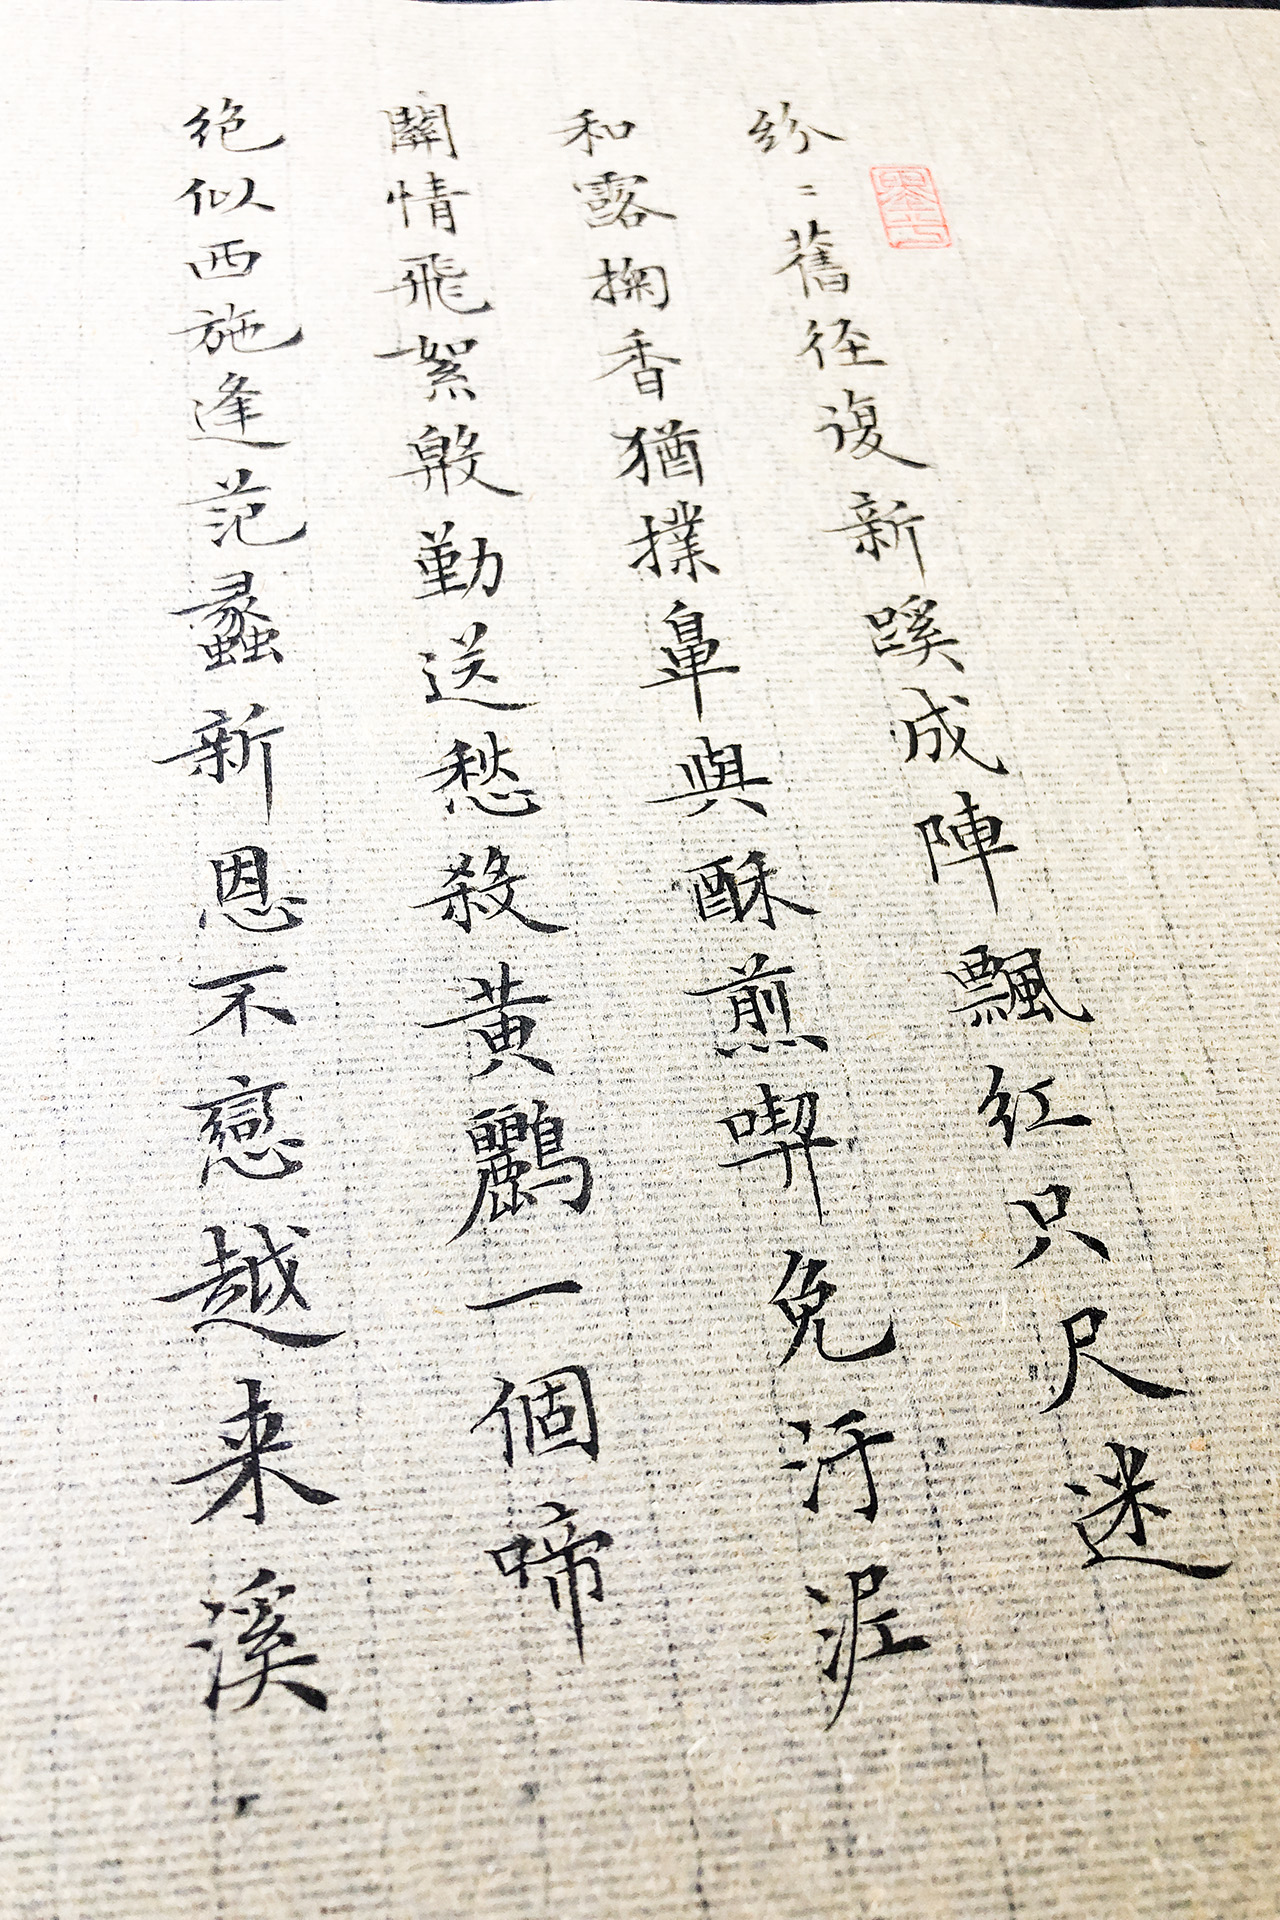 紛〻舊徑復新蹊成陣飄紅只尺迷
和露掬香猶撲鼻與酥煎喫免汙泥
關情飛絮殷勤送愁殺黃鸝一個啼
絕似西施逢范蠡新恩不戀越来溪